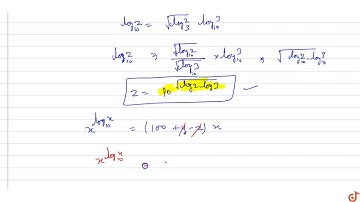 log₁₀2 = √(log₃2) · log₁₀3
log₁₀2 ⇒ √(log₁₀2) / √(log₁₀3) × log₁₀3 , √(log₁₀2 · log₁₀3)
2 = 10^√(log2·log3)
x^(log₁₀x) = (100 + 2 - 2) x
x^(log₁₀x)